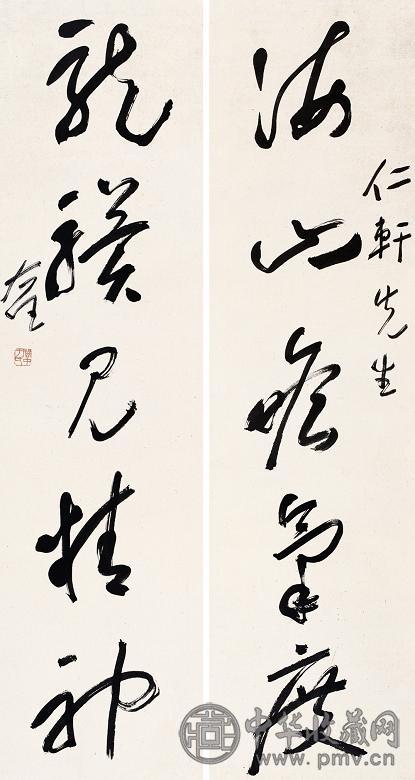 仁軒先生
海山瞻氣度
龍驥見精神
右任
中华收藏网
www.pmv.cn